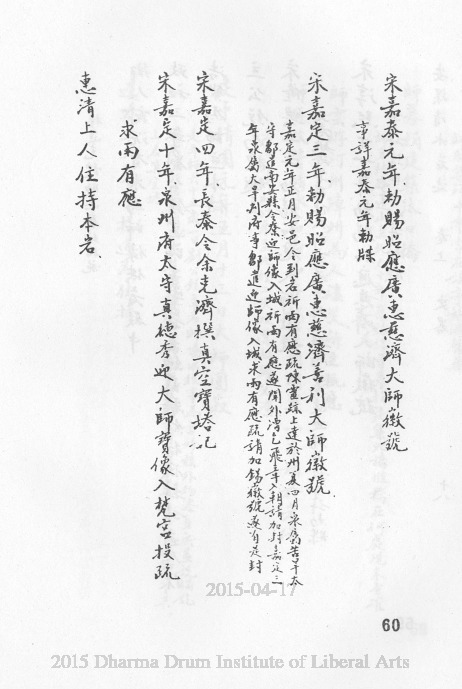 宋嘉泰元年勅賜昭應廣惠慈濟大師徽號
事詳嘉泰元年勅牒
宋嘉定三年勅賜昭應廣惠慈濟善利大師徽號
嘉定元年正月安邑令到岩祈雨有應疏陳靈蹟上達於州夏四月泉屬苦旱太
守鄒迎南安縣令奏迎師像入城祈雨有應
年泉屬大旱判府事鄒進迎師像入城求雨有應疏請加錫徽號遂有是封
宋嘉定四年長泰令余克濟撰真空寶塔記
宋嘉定十年泉州府太守真德秀迎大師寶像入梵宮投疏
求雨有應
惠清上人住持本岩
2015-04-17
60
2015 Dharma Drum Institute of Liberal Arts